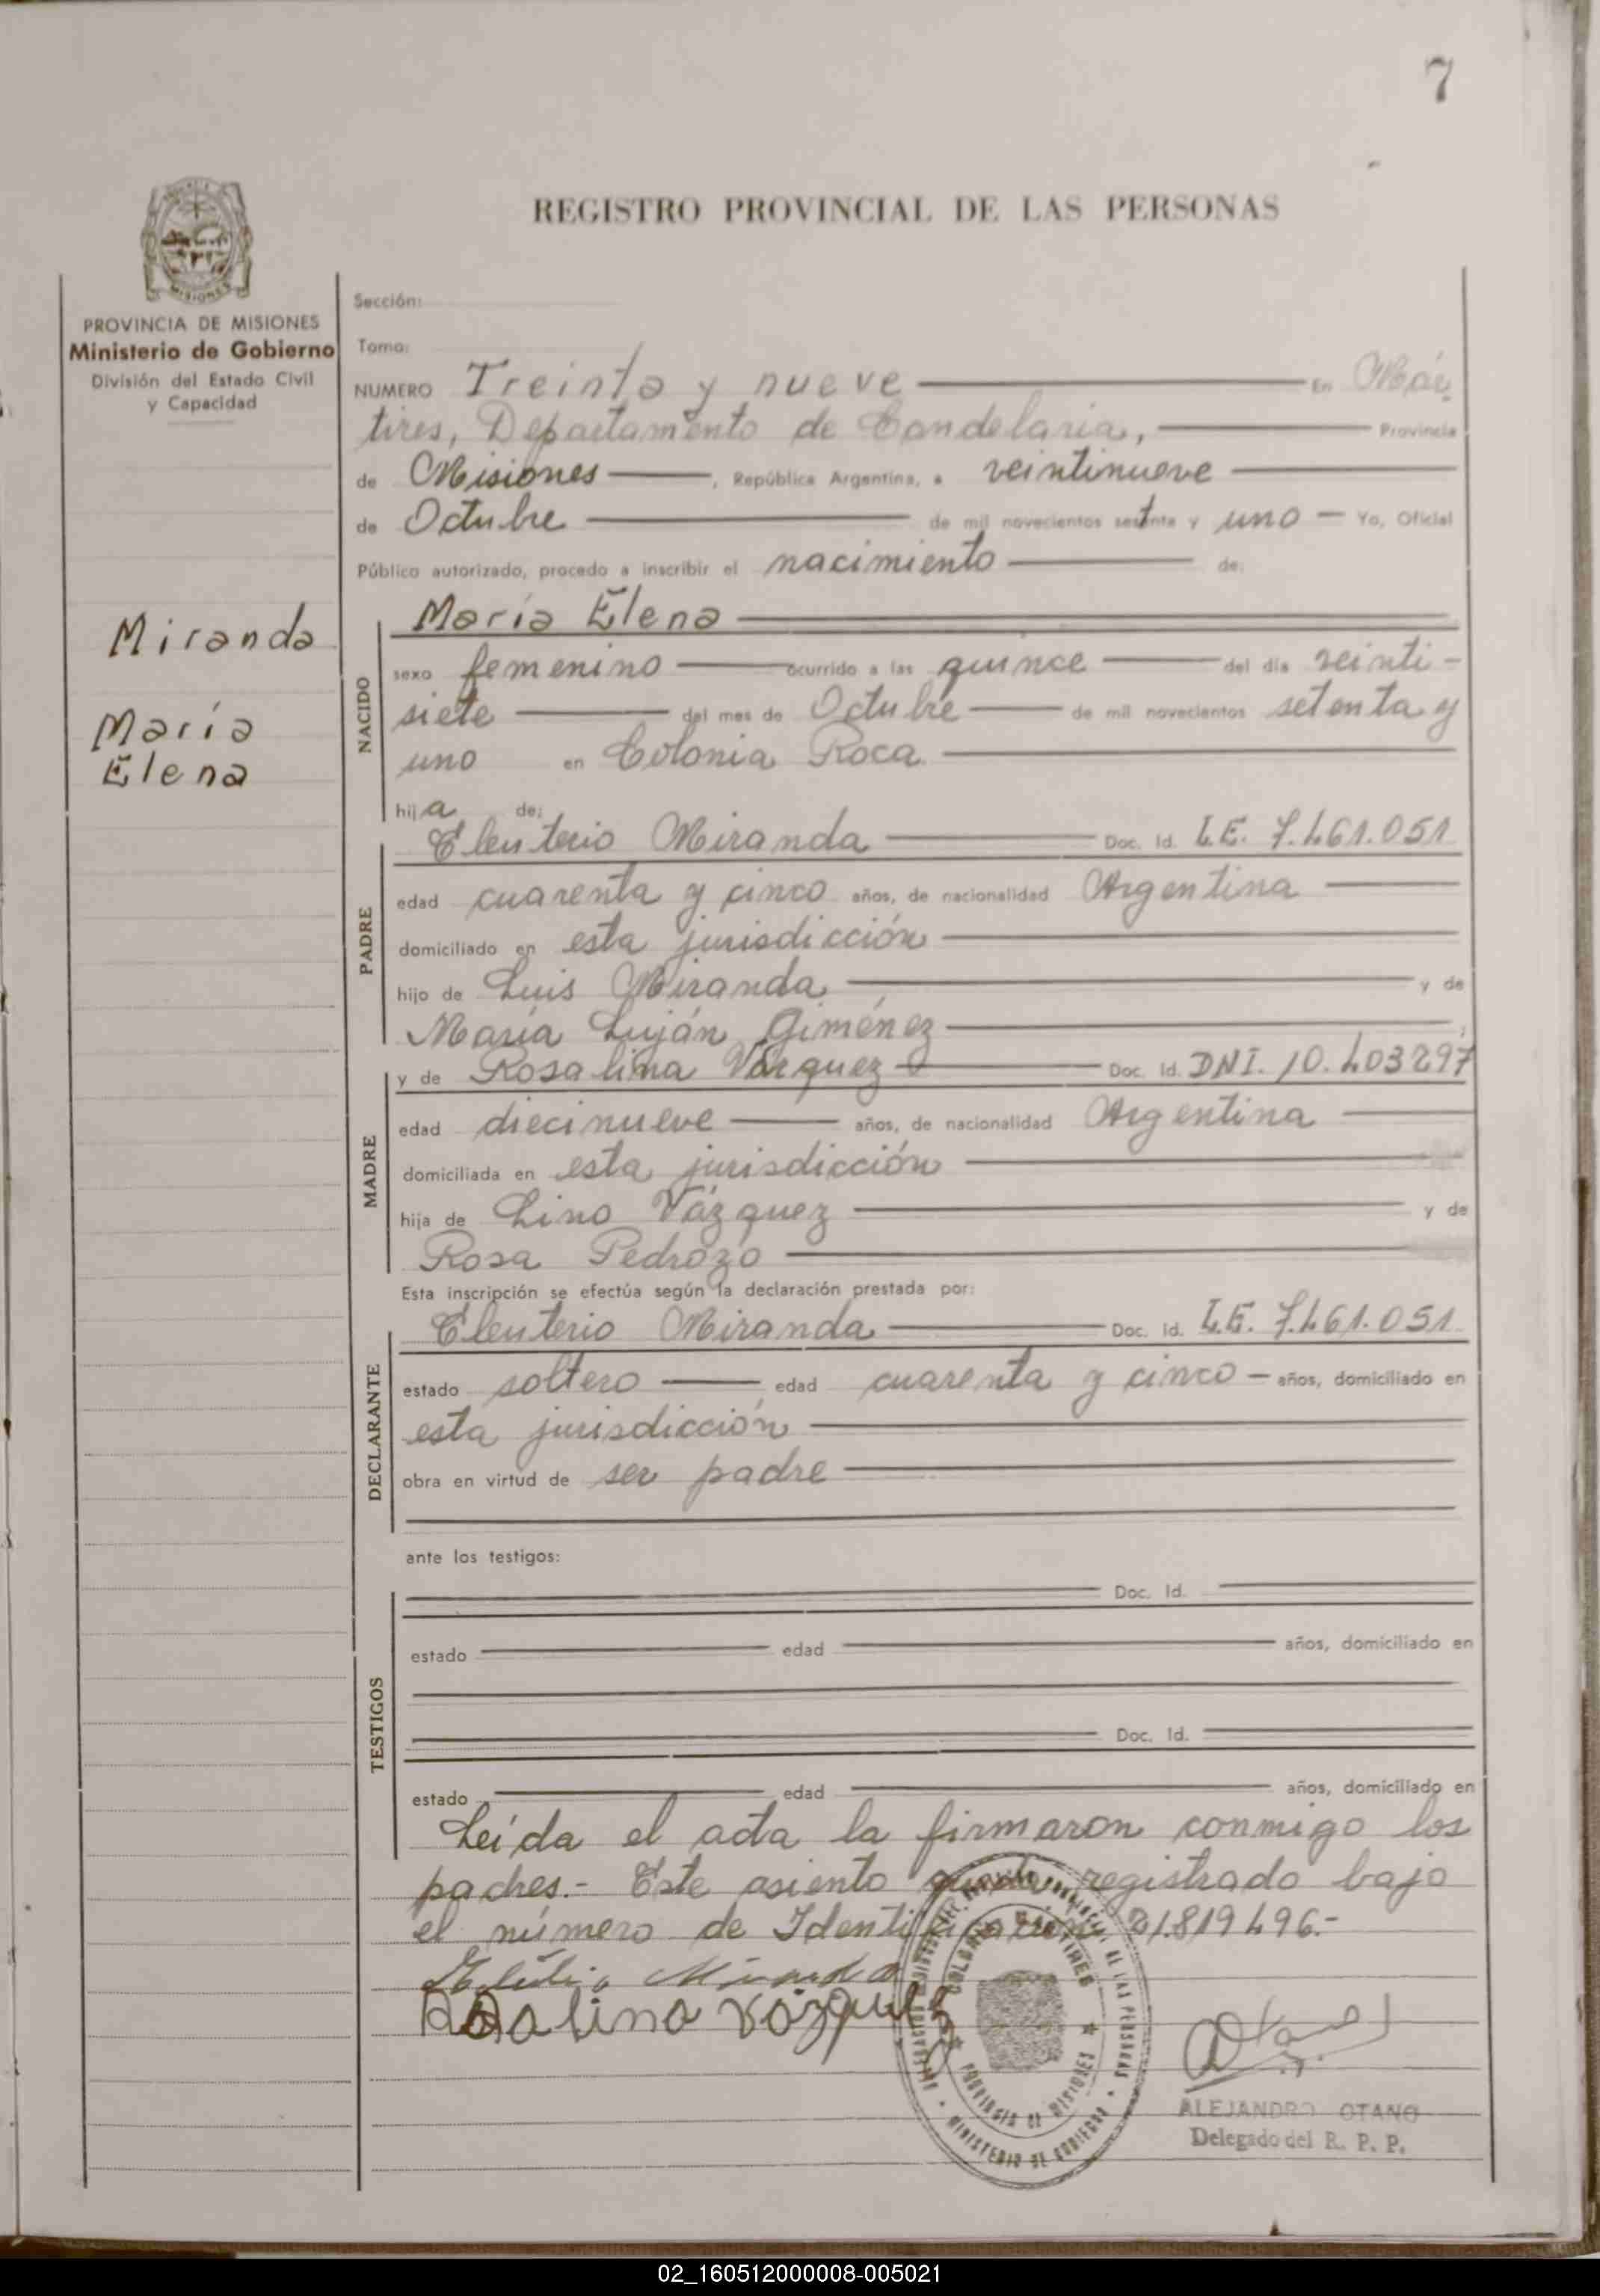 7
REGISTRO PROVINCIAL DE LAS PERSONAS
MISIONES
PROVINCIA DE MISIONES
Ministerio de Gobierno
División del Estado Civil
y Capacidad
Miranda
María
Elena
Sección:
Tomo:
NUMERO Treinta y nueve En Már
tires, Departamento de Candelaria, Provincia
de Misiones, República Argentina, a veintinueve
de Octubre de mil novecientos setenta y uno Yo, Oficial
Público autorizado, procedo a inscribir el nacimiento de:
NACIDO
María Elena
sexo femenino ocurrido a las quince del día veinti-
siete del mes de Octubre de mil novecientos setenta y
uno en Colonia Roca
hija de:
PADRE
Eleuterio Miranda Doc. Id. L.E. 7.461.051
edad cuarenta y cinco años, de nacionalidad Argentina
domiciliado en esta jurisdicción
hijo de Luis Miranda y de
María Luján Giménez
MADRE
y de Rosalina Vázquez Doc. Id. DNI. 10.403297
edad diecinueve años, de nacionalidad Argentina
domiciliada en esta jurisdicción
hija de Lino Vázquez y de
Rosa Pedrozo
Esta inscripción se efectúa según la declaración prestada por:
DECLARANTE
Eleuterio Miranda Doc. Id. L.E. 7.461.051
estado soltero edad cuarenta y cinco años, domiciliado en
esta jurisdicción
obra en virtud de ser padre
ante los testigos:
TESTIGOS
Doc. Id.
estado edad años, domiciliado en
Doc. Id.
estado edad años, domiciliado en
Leída el acta la firmaron conmigo los
padres.- Este asiento queda registrado bajo
el número de Identificación 21.819496.-
Miranda
Rosalina Vázquez
COLONIA MARTIRES
PROVINCIA DE MISIONES
MINISTERIO DE GOBIERNO
DE LAS PERSONAS
ALEJANDRO OTANO
Delegado del R. P. P.
02_160512000008-005021